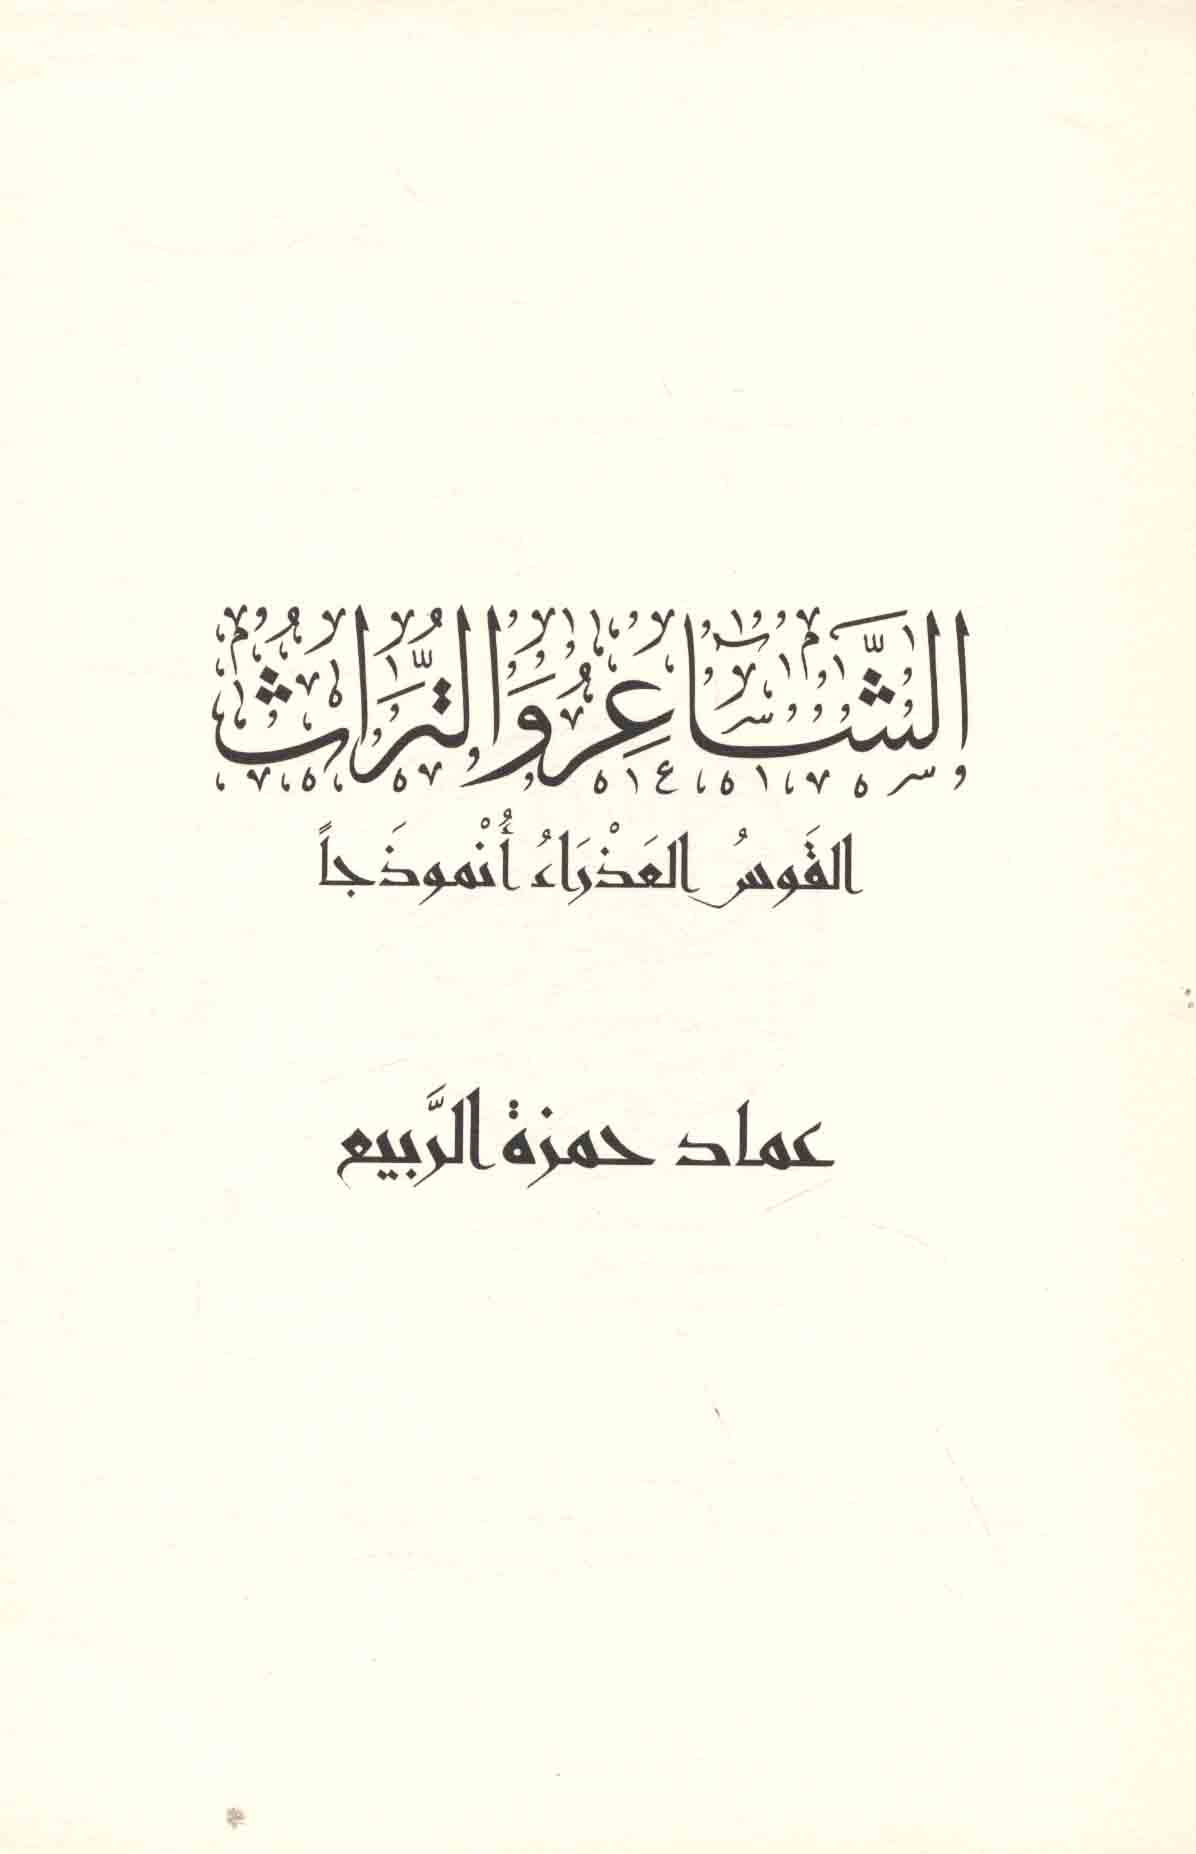 الشَّاعِرُ وَالتُّرَاثُ
القَوسُ العَذْرَاءُ أُنْموذَجاً
عماد حمزة الرَّبيع